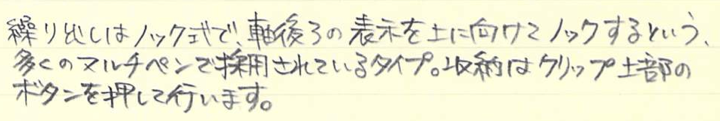 繰り出しはノック式で、軸後ろの表示を上に向けてノックするという、
多くのマルチペンで採用されているタイプ。収納はクリップ上部の
ボタンを押して行います。